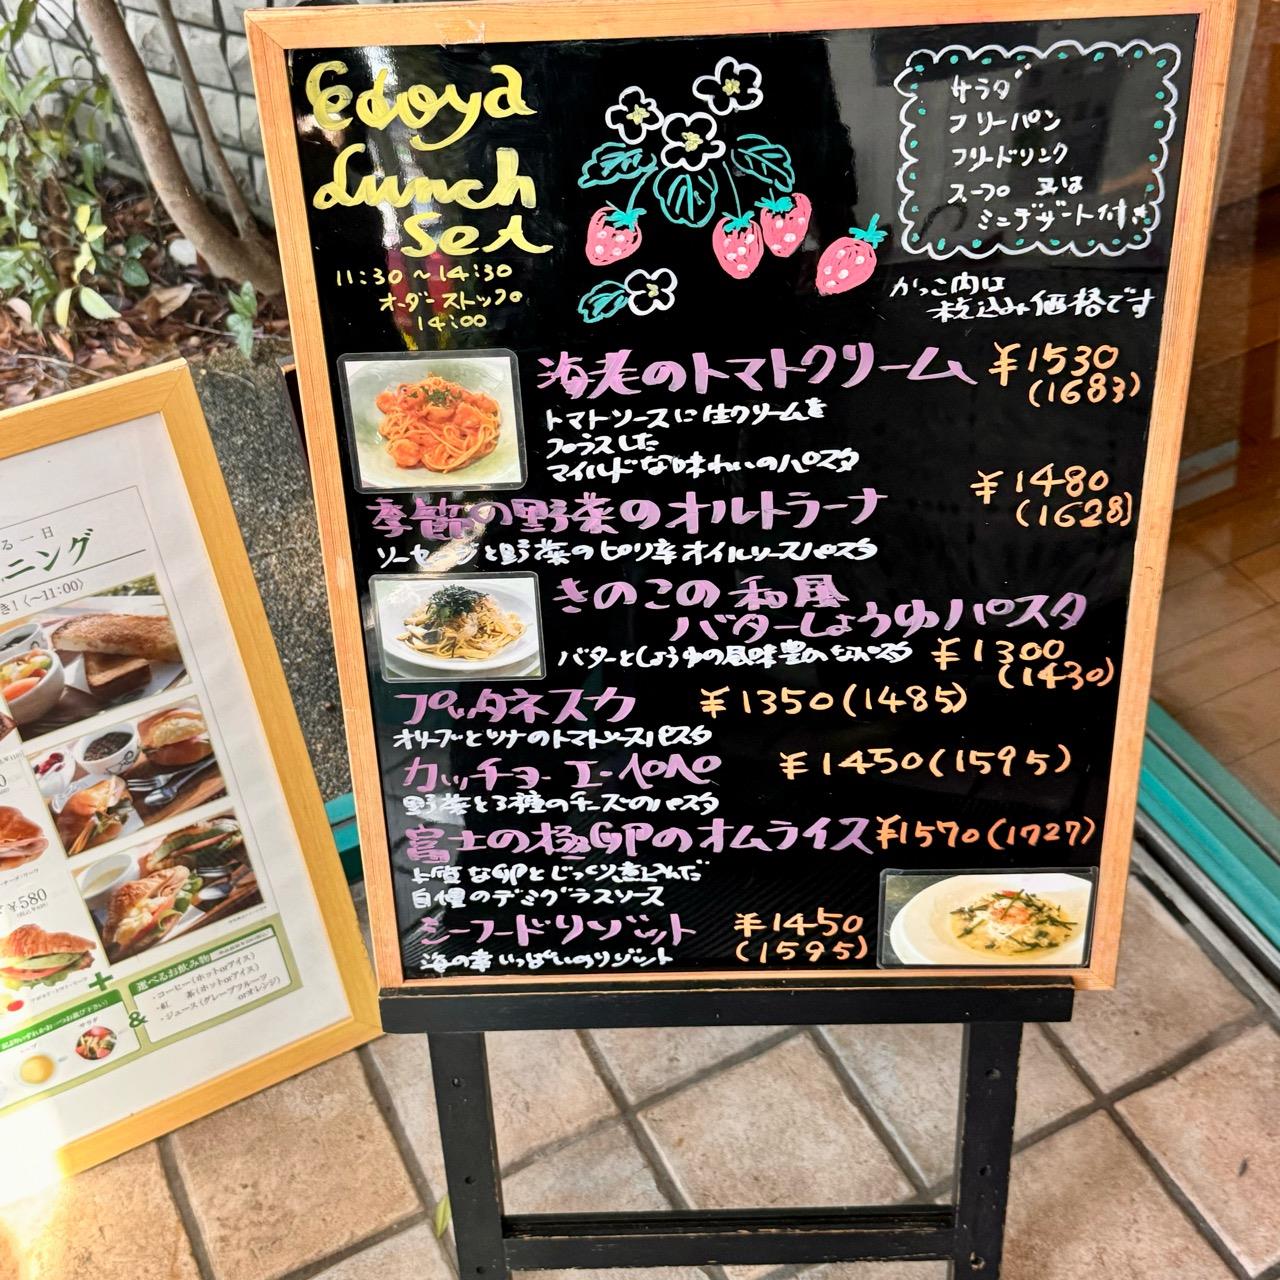 Edoya
Lunch
Set
11:30~14:30
オーダーストップ
14:00
サラダ
フリーパン
フリードリンク
スープ 又は
ミニデザート付き
かっこ内は
税込み価格です
海老のトマトクリーム ¥1530
(1683)
トマトソースに生クリームを
プラスした
マイルドな味わいのパスタ
季節の野菜のオルトラーナ ¥1480
(1628)
ソーセージと野菜のピリ辛オイルソースパスタ
きのこの和風
バターしょうゆパスタ
バターとしょうゆの風味豊かなパスタ ¥1300
(1430)
プッタネスカ ¥1350(1485)
オリーブとツナのトマトソースパスタ
カッチョエーペペ ¥1450(1595)
野菜と3種のチーズのパスタ
富士の極卵のオムライス ¥1570(1727)
上質な卵とじっくり煮込んだ
自慢のデミグラスソース
シーフードリゾット ¥1450
(1595)
海の幸いっぱいのリゾット
る一日
ニング
き!〈~11:00〉
¥580
+
選べるお飲み物
・コーヒー(ホットorアイス)
・紅 茶(ホットorアイス)
・ジュース(グレープフルーツ
orオレンジ)
&
サラダ